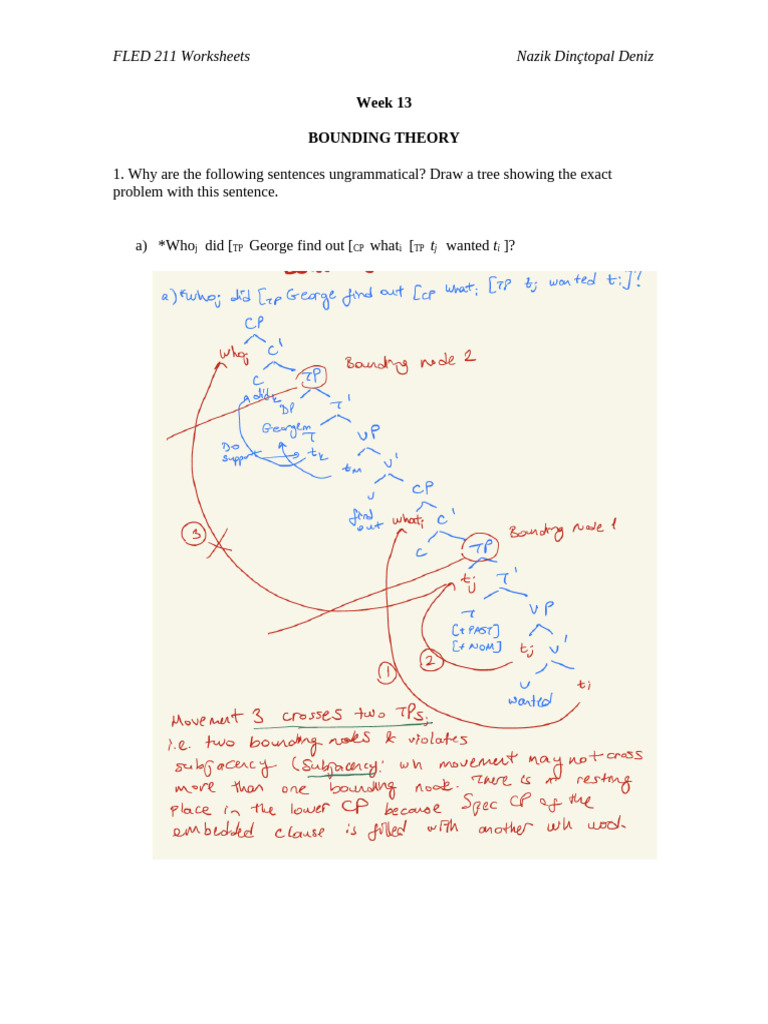 FLED 211 Worksheets Nazik Dinçtopal Deniz
Week 13
BOUNDING THEORY
1. Why are the following sentences ungrammatical? Draw a tree showing the exact
problem with this sentence.
a) *Whoj did [TP George find out [CP whati [TP tj wanted ti ]?
a) *whoj did [TP George find out [CP whati [TP tj wanted ti]?
CP
whoj C'
C TP Bounding node 2
didk
DP T'
Georgem
T VP
Do
support tk
tm V'
V CP
find
out whati C' Bounding Node 1
C TP
3
tj T'
T VP
[+PAST]
[+NOM] tj V'
2
1
V ti
wanted
Movement 3 crosses two TPs,
i.e. two bounding nodes & violates
subjacency (Subjacency: wh movement may not cross
more than one bounding node. There is no resting
place in the lower CP because Spec CP of the
embedded clause is filled with another wh word.